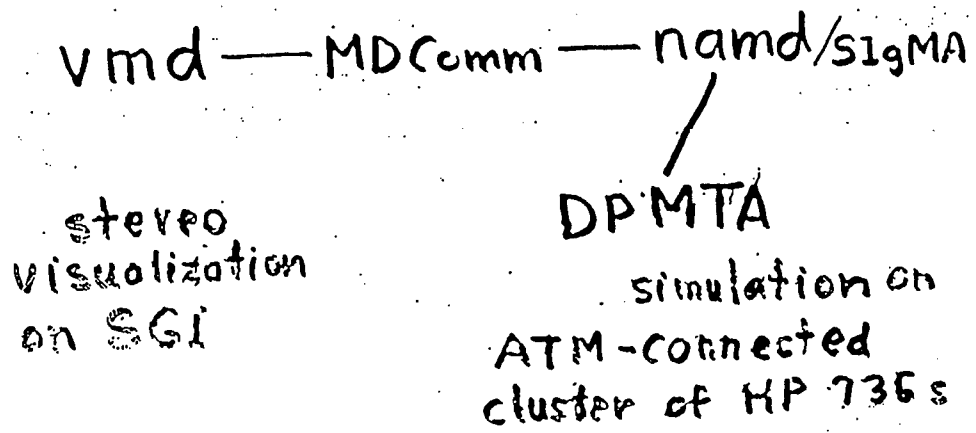 vmd — MDComm — namd/SIgMA
DPMTA
stereo
visualization
on SGI
simulation on
ATM-connected
cluster of HP 735s